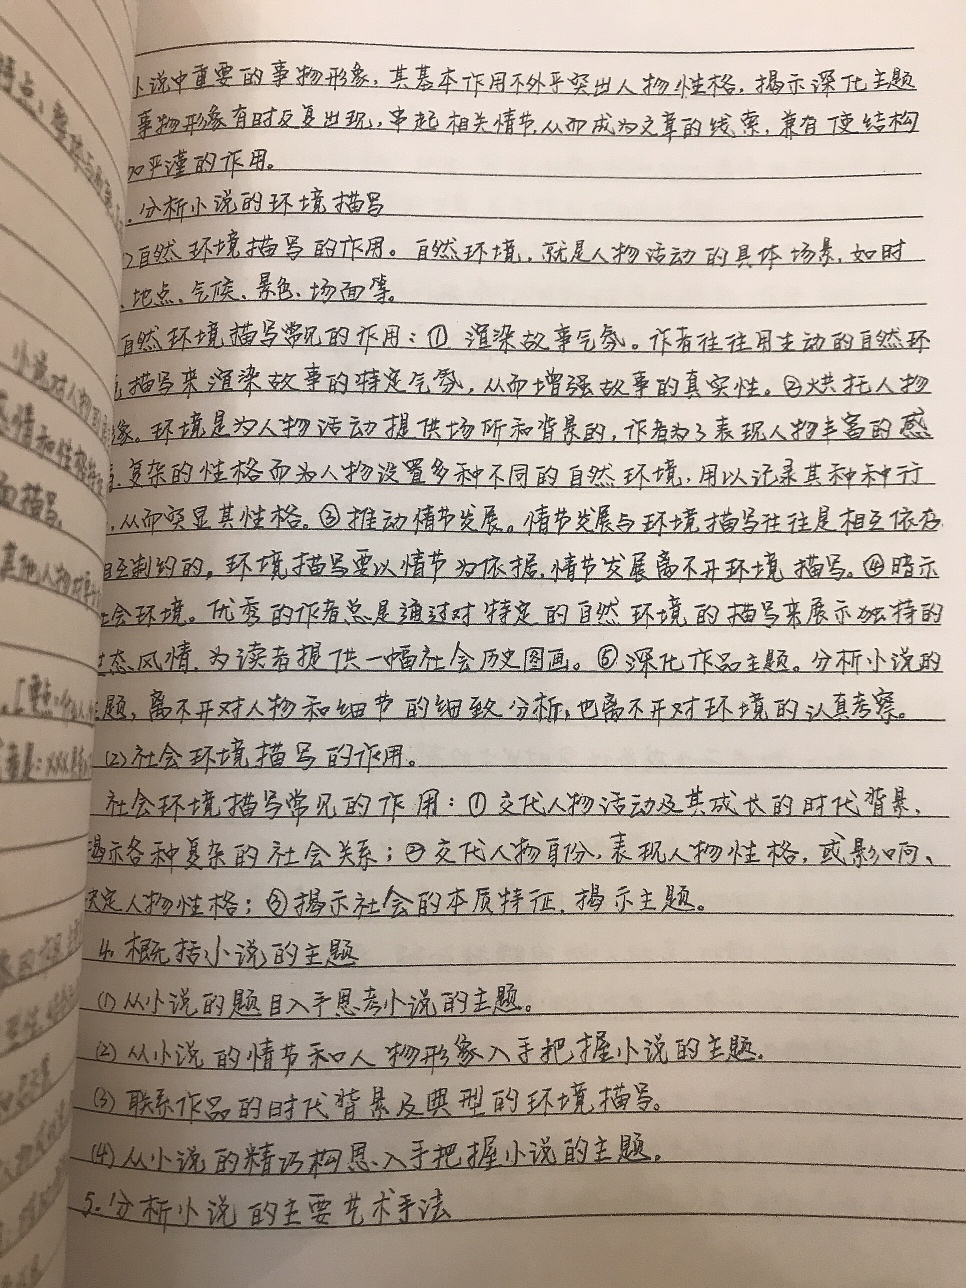 小说中重要的事物形象，其基本作用不外乎突出人物性格，揭示深化主题
事物形象有时反复出现，串起相关情节，从而成为文章的线索，兼有使结构
加严谨的作用。
.分析小说的环境描写
)自然环境描写的作用。自然环境，就是人物活动的具体场景，如时
、地点、气候、景色、场面等。
自然环境描写常见的作用：①渲染故事气氛。作者往往用生动的自然环
描写来渲染故事的特定气氛，从而增强故事的真实性。②烘托人物
象。环境是为人物活动提供场所和背景的，作者为了表现人物丰富的感
复杂的性格而为人物设置多种不同的自然环境，用以记录其种种行
，从而突显其性格。③推动情节发展。情节发展与环境描写往往是相互依存
相互制约的，环境描写要以情节为依据，情节发展离不开环境描写。④暗示
社会环境。优秀的作者总是通过对特定的自然环境的描写来展示独特的
世态风情，为读者提供一幅社会历史图画。⑤深化作品主题。分析小说的
主题，离不开对人物和细节的细致分析，也离不开对环境的认真考察。
(2)社会环境描写的作用。
社会环境描写常见的作用：①交代人物活动及其成长的时代背景，
揭示各种复杂的社会关系；②交代人物身份，表现人物性格，或影响、
决定人物性格；③揭示社会的本质特征，揭示主题。
4.概括小说的主题
(1)从小说的题目入手思考小说的主题。
(2)从小说的情节和人物形象入手把握小说的主题.
(3)联系作品的时代背景及典型的环境描写。
(4)从小说的精巧构思入手把握小说的主题。
5.分析小说的主要艺术手法
小说对人物
感情和性格
面描写.
其他人物